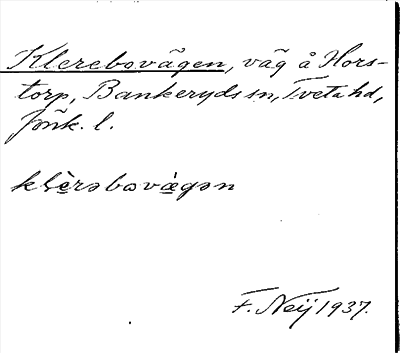 Klerebovägen, väg å Hors-
torp, Bankeryds sn, Tveta hd,
Jönk. l.
klèrəbovægən
F. Neij 1937.